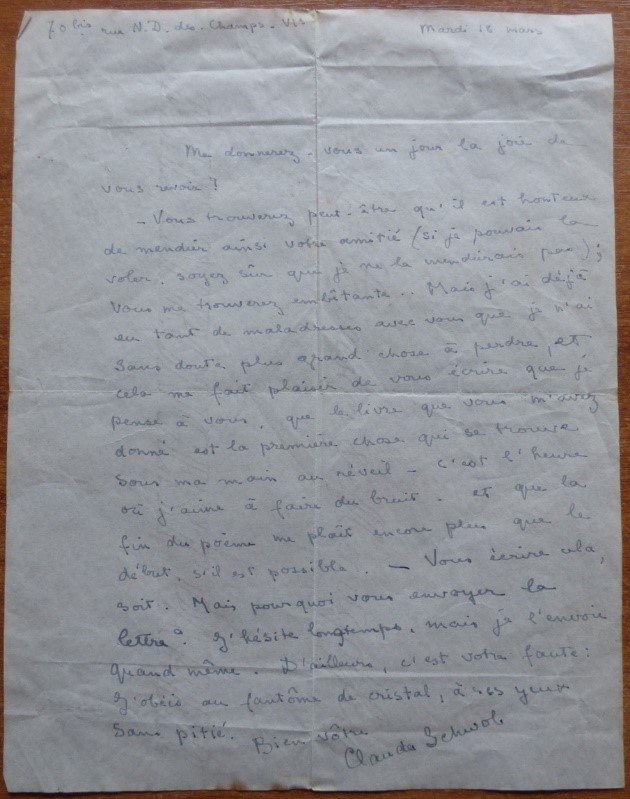 70 bis rue N.D. des Champs. VIe
Mardi 18 mars
Me donnerez-vous un jour la joie de
vous revoir ?
- Vous trouverez peut-être qu'il est honteux
de mendier ainsi votre amitié (si je pouvais la
voler, soyez sûr que je ne la mendierais pas) ;
Vous me trouverez embêtante.. Mais j'ai déjà
eu tant de maladresses avec vous que je n'ai
sans doute plus grand chose à perdre, et
cela me fait plaisir de vous écrire que je
pense à vous, que le livre que vous m'avez
donné est la première chose qui se trouve
sous ma main au réveil - c'est l'heure
où j'aime à faire du bruit. et que la
fin du poème me plaît encore plus que le
début, s'il est possible. - Vous écrire cela,
soit. Mais pourquoi vous envoyer la
lettre ? J'hésite longtemps, mais je l'envoie
quand même. D'ailleurs, c'est votre faute :
J'obéis au fantôme de cristal, à ses yeux
sans pitié. Bien vôtre
Claude Schwob